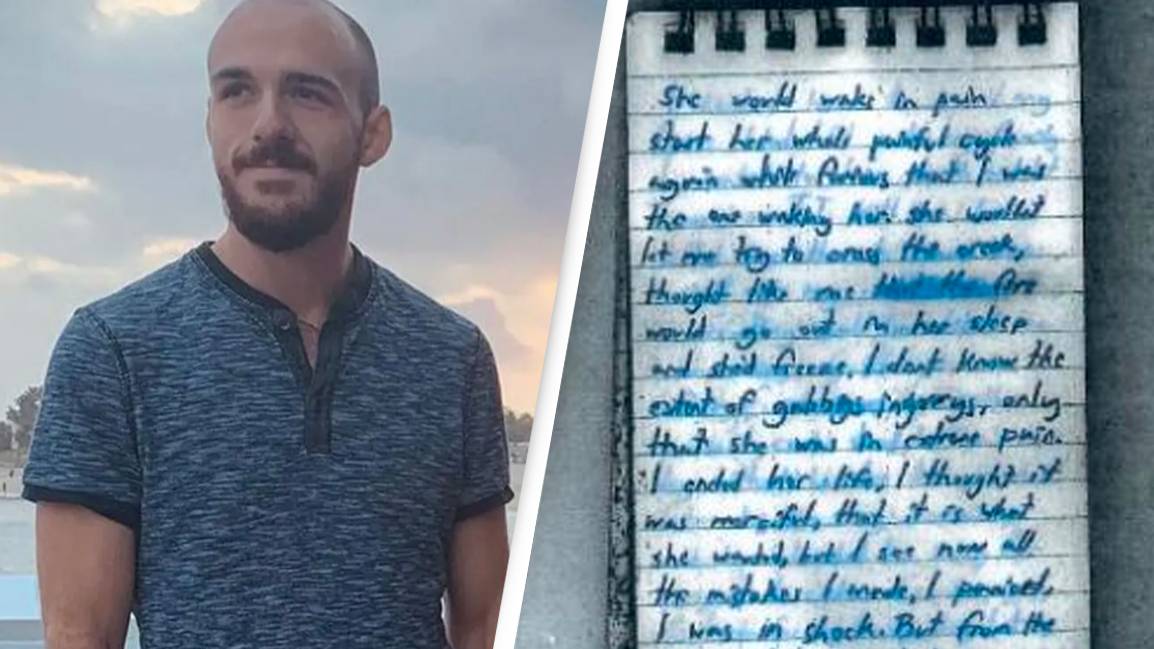 She would wake in pain
start her whole painful cycle
again while furious that I was
the one waking her. she wouldnt
let me try to cross the creek,
thought like me the fire
would go out in her sleep
and she'd freeze, I dont know the
extent of gabbys ingurys, only
that she was in extreme pain.
I ended her life, I thought it
was merciful, that it is what
she wanted, but I see now all
the mistakes I made, I panicked,
I was in shock. But from the